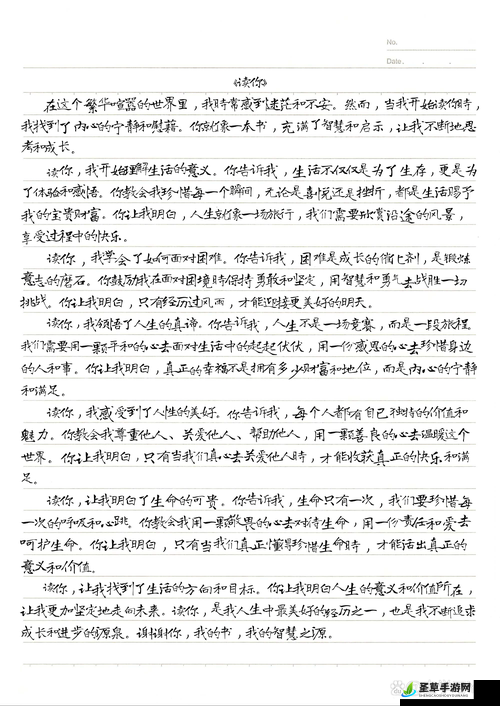 No.
Date.
《读你》
在这个繁华喧嚣的世界里，我时常感到迷茫和不安。然而，当我开始读你时，
我找到了内心的宁静和慰藉。你就像一本书，充满了智慧和启示，让我不断地思
考和成长。
读你，我开始理解生活的意义。你告诉我，生活不仅仅是为了生存，更是为
了体验和感悟。你教会我珍惜每一个瞬间，无论是喜悦还是挫折，都是生活赐予
我的宝贵财富。你让我明白，人生就像一场旅行，我们需要欣赏沿途的风景，
享受过程中的快乐。
读你，我学会了如何面对困难。你告诉我，困难是成长的催化剂，是锻炼
意志的磨石。你鼓励我在面对困境时保持勇敢和坚定，用智慧和勇气去战胜一切
挑战。你让我明白，只有经历过风雨，才能迎接更美好的明天。
读你，我领悟了人生的真谛。你告诉我，人生不是一场竞赛，而是一段旅程。
我们需要用一颗平和的心去面对生活中的起起伏伏，用一份感恩的心去珍惜身边
的人和事。你让我明白，真正的幸福不是拥有多少财富和地位，而是内心的宁静
和满足。
读你，我感受到了人性的美好。你告诉我，每个人都有自己独特的价值和
魅力。你教会我尊重他人、关爱他人、帮助他人，用一颗善良的心去温暖这个
世界。你让我明白，只有当我们真心去关爱他人时，才能收获真正的快乐和满
足。
读你，让我明白了生命的可贵。你告诉我，生命只有一次，我们要珍惜每
一次的呼吸和心跳。你教会我用一颗敬畏的心去对待生命，用一份责任和爱去
呵护生命。你让我明白，只有当我们真正懂得珍惜生命时，才能活出真正的
意义和价值。
读你，让我找到了生活的方向和目标。你让我明白人生的意义和价值所在，
让我更加坚定地走向未来。读你，是我人生中最美好的经历之一，也是我不断追求
成长和进步的源泉。谢谢你，我的书，我的智慧之源。
圣草手游网